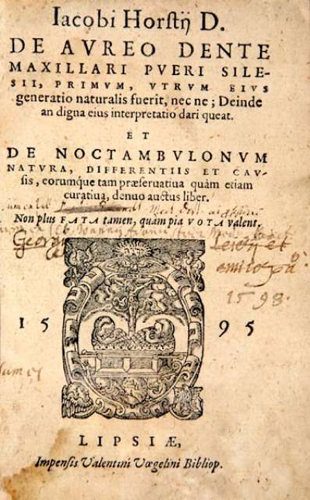 Iacobi Horstij D.
DE AVREO DENTE
MAXILLARI PVERI SILE-
SII, PRIMVM, VTRVM EIVS
generatio naturalis fuerit, nec ne; Deinde
an digna eius interpretatio dari queat.
ET
DE NOCTAMBVLONVM
NATVRA, DIFFERENTIIS ET CAV-
sis, eorumque tam præseruatiua quàm etiam
curatiua, denuo auctus liber.
Non plus FATA tamen, quàm pia VOTA valent.
Georg
1598.
1595
LIPSIÆ,
Impensis Valentini Vœgelini Bibliop.